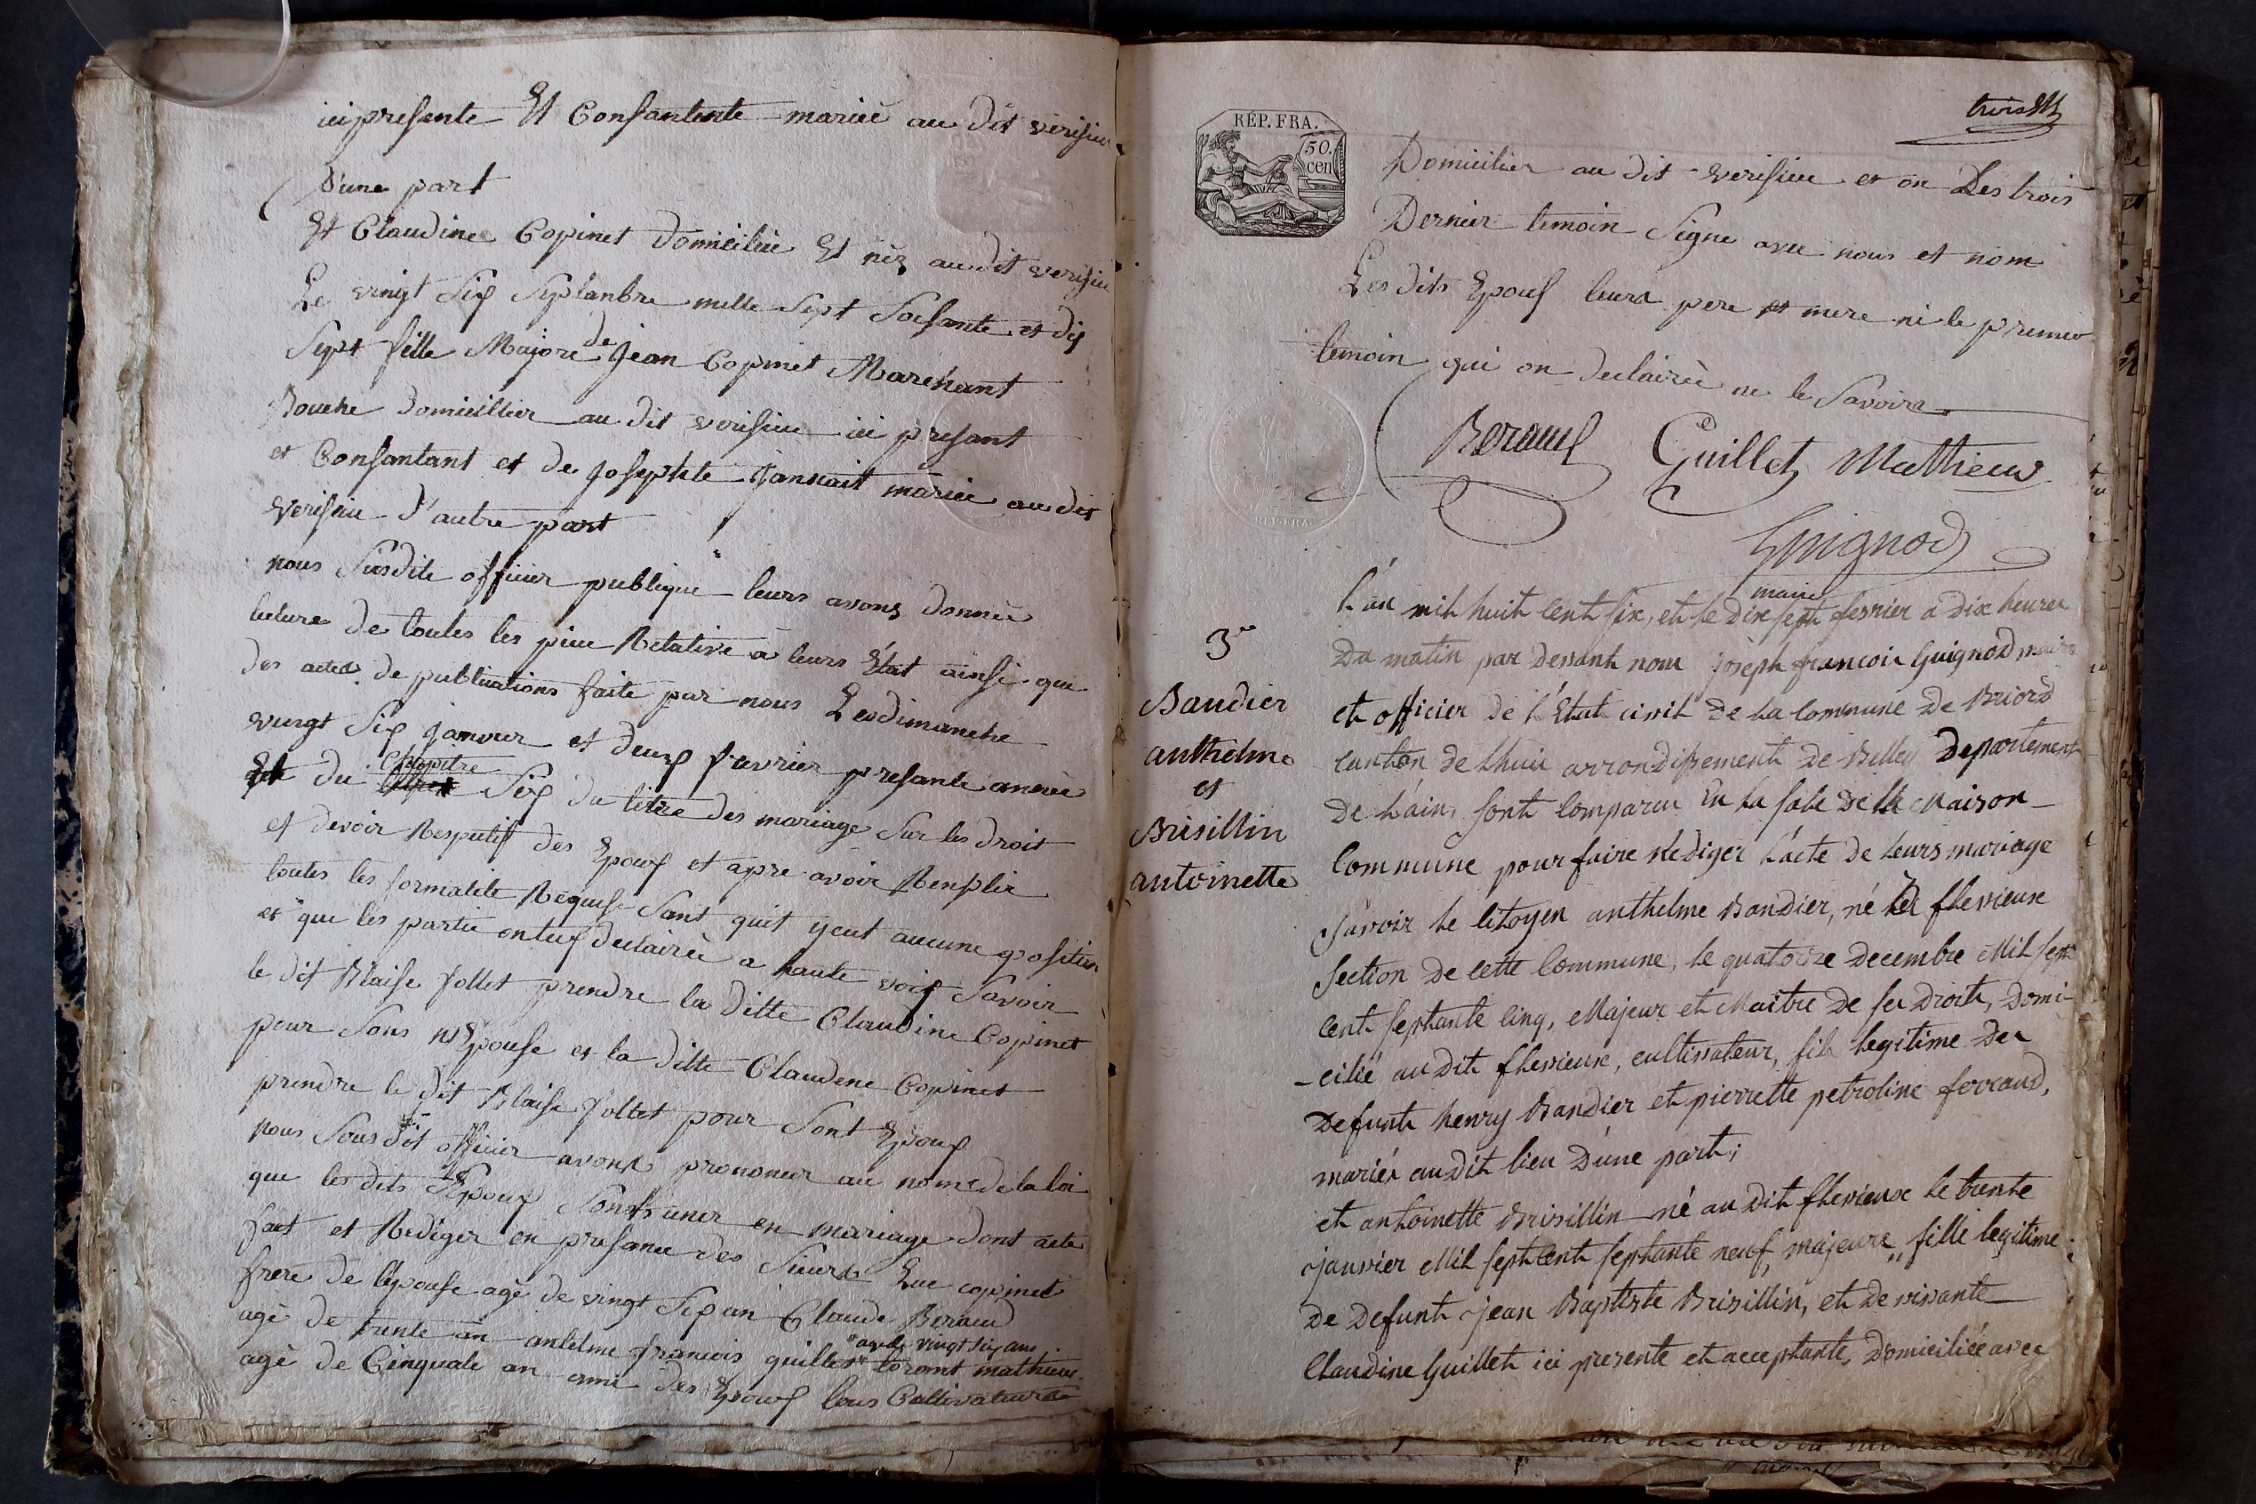 ici presente Et Consantente mariée au dit verisieu
D'une part
Et Claudine Copinet Domiciliée Et née au dit verisieu
Le vingt Six Septanbre mille Sept Soisante et dix
Sept fille Majore de Jean Copinet Marchant
Bouche Domicillier au dit verisieu ici presant
et Consantant et de Josephte Jannait mariée au dit
verisieu d'autre part
nous Susdite officier publique leurs avons donnée
lecture de toutes les piece Relative a leurs Etat ainsi que
des actes de publications faite par nous Les dimanche
vingt Six janvier et deux fevrier presante année
Et du Chapitre Six du titre des mariage Sur les droit
et devoir Respectif des Epoux et apre avoir Remplie
toutes les formalite Requise Sant quit yeut aucune oposition
et que les partie onteux declairée a haute voix Savoir
le dit Blaise Jollet prendre la ditte Claudine Copinet
pour Sons Epouse et la ditte Claudene Copinet
prendre le dit Blaise Jollet pour Sont Epoux
nous Sous dit officier avons prononcer au nom de la loi
que les dits Epoux Sonts uner en mariage dont acte
fact et Rediger en presance des Sieurs Luc copinet
frere de l'epouse agé de vingt Six an Claude Beraud
agé de trente an antelme francois guillet agé de vingt six ans torant mathieu
agé de Cinquate an ami des Epoux tous Cultivateurs
trois
RÉP. FRA.
50.
cen
Domicilier au dit verisieu et on Les trois
Dernier temoin Signe avec nous et nom
Les dits Epoux leurs pere et mere ni le premier
temoin qui on declairée ne le Savoire
Beraud Guillet Mathieu
Guignod
maire
3e
Baudier
anthelme
et
Brisillin
antoinette
L'an mil huit cent six, et le dix sept fevrier a dix heures
Du matin par devant nous joseph francois Guignod maire
et officier de l'Etat civil de la Commune de Briord
canton de Lhuis arrondissement de Belley Departement
De l'ain, sont Comparu En la sale de la Maison
Commune pour faire Rediger l'acte de leurs mariage
Savoir le Citoyen anthelme Baudier, né a flevieux
Section de cette Commune, le quatorze decembre Mil sept
cent septante cinq, Majeur et Maitre de ses Droits, Domi-
-cilié au dit flevieux, cultivateur, fils legitime des
Defunt henry Baudier et pierrette petroline ferraud,
mariés au dit lieu D'une part;
et antoinette Brisillin né au dit flevieux le trente
janvier Mil sept cent septante neuf, majeure, fille legitime
de Defunt jean Baptiste Brisillin, et de vivante
Claudine Guillet ici presente et acceptante, Domiciliée avec